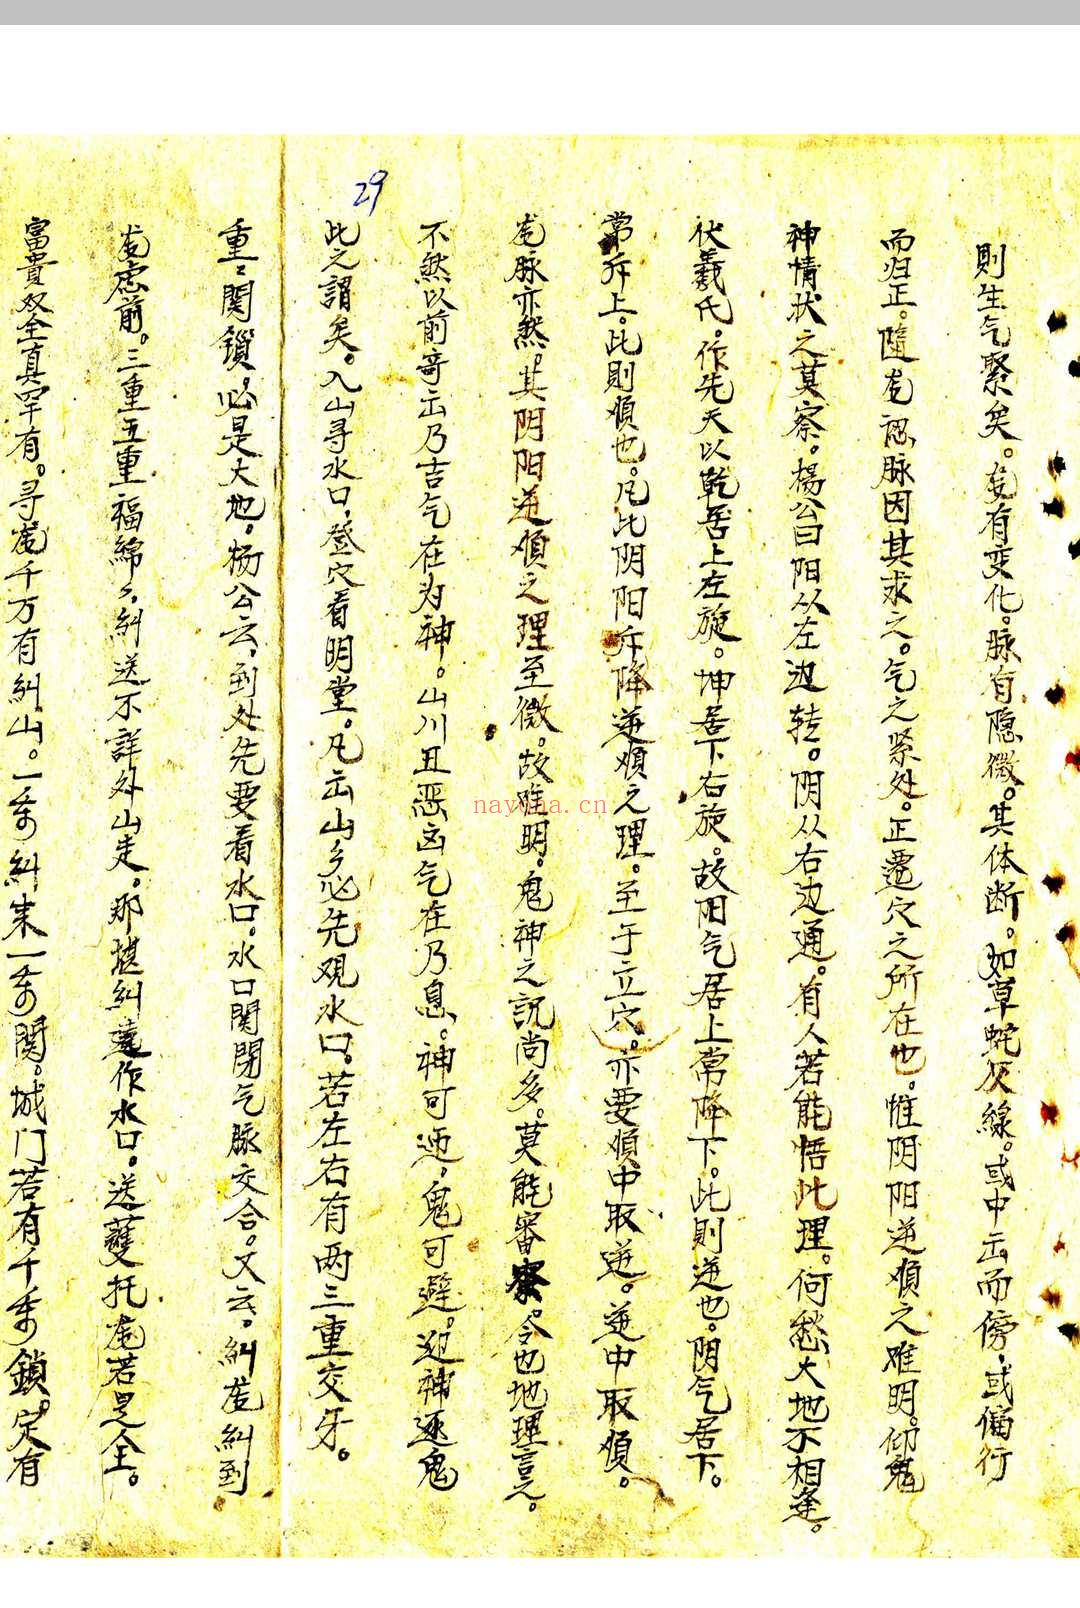 29
則生气緊矣。龙有变化。脉有隐微。其体断。如草蛇灰線。或中出而傍，或偏行
而归正。隨龙認脉因其求之。气之紧处。正遷穴之所在也。惟阴阳逆順之难明。仰鬼
神情状之莫察。楊公曰阳从左边转。阴从右边通。有人若能悟此理。何愁大地不相逢。
伏羲氏。作先天以乾居上左旋。坤居下右旋。故阳气居上常降下。此則逆也。阴气居下。
常升上。此則順也。凡此阴阳升降逆順之理。至于立穴。亦要順中取逆。逆中取順。
龙脉亦然。其阴阳逆順之理至微。故难明。鬼神之説尚多。莫能審察。令也地理言之。
不然以前奇云乃吉气在为神。山川丑恶凶气在乃息。神可迎，鬼可避。迎神逐鬼
此之謂矣。入山寻水口，登穴看明堂。凡云山乡必先观水口。若左右有两三重交牙。
重々関鎖。必是大地。杨公云，到处先要看水口。水口関閉气脉交合。又云。糾龙糾到
龙虎前。三重五重福綿々。糾送不詳外山走。那堪糾遠作水口。送護托龙若是全。
富貴双全真罕有。寻龙千万有糾山。一条糾来一条関。城门若有千条鎖。定有
nayona.cn